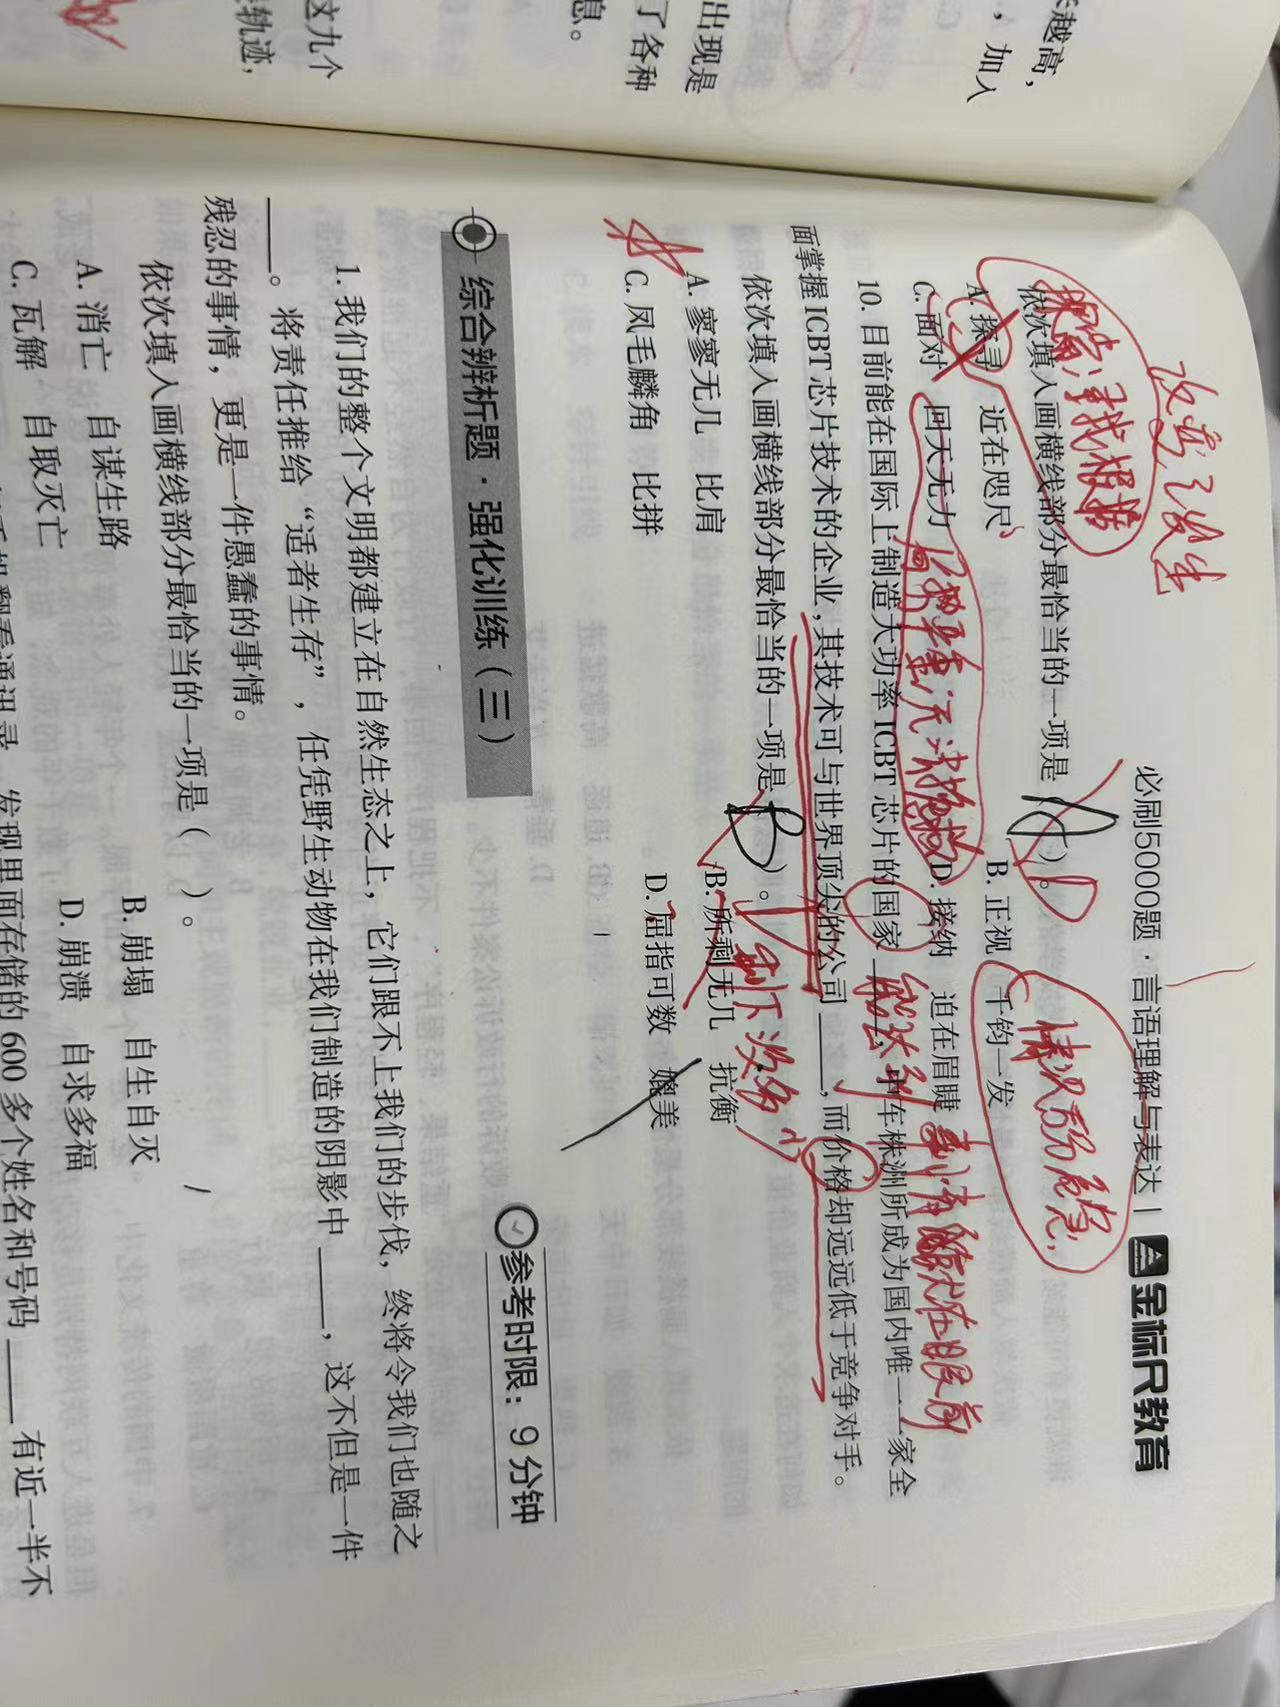 越高，
，加入
出现是
了各种
息。
这九个
轨迹，
必刷5000题·言语理解与表达 | 金标尺教育
依次填入画横线部分最恰当的一项是（ ）。
A. 探寻 近在咫尺
B. 正视 千钧一发
C. 面对 回天无力
D. 接纳 迫在眉睫
情况万分危急
事情已在眼前
剩下没多少
10. 目前能在国际上制造大功率 ICBT 芯片的国家____，中车株洲所成为国内唯一一家全
面掌握 ICBT 芯片技术的企业，其技术可与世界顶尖的公司____，而价格却远远低于竞争对手。
依次填入画横线部分最恰当的一项是（B）。
A. 寥寥无几 比肩
B. 所剩无几 抗衡
C. 凤毛麟角 比拼
D. 屈指可数 媲美
综合辨析题·强化训练（三）
参考时限：9 分钟
1. 我们的整个文明都建立在自然生态之上，它们跟不上我们的步伐，终将令我们也随之
____。将责任推给“适者生存”，任凭野生动物在我们制造的阴影中____，这不但是一件
残忍的事情，更是一件愚蠢的事情。
依次填入画横线部分最恰当的一项是（ ）。
A. 消亡 自谋生路
B. 崩塌 自生自灭
C. 瓦解 自取灭亡
D. 崩溃 自求多福
手机翻看通讯录，发现里面存储的 600 多个姓名和号码____有近一半不